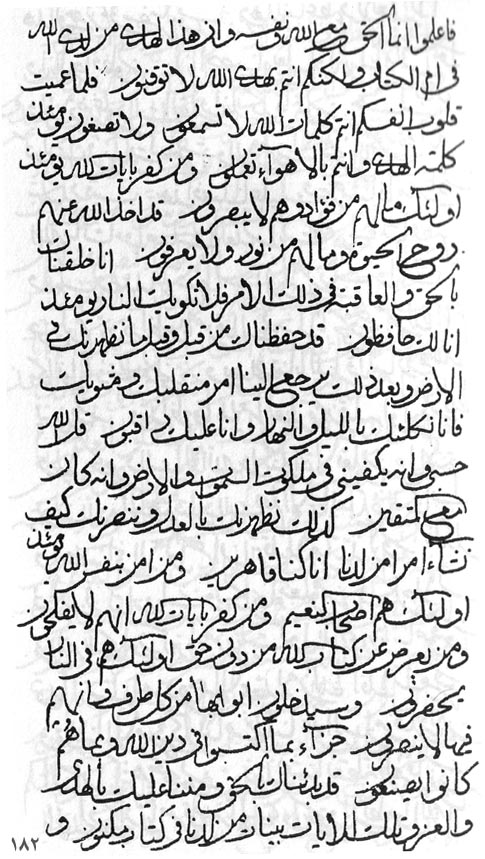 فاعلموا انما الحق مع الله ونفسه وان هذا لهدى من لدى الله
فى ام الكتاب ولكنكم انتم بهدى الله لا توقنون فلما عميت
قلوب انفسكم انتم كلمات الله لا تسمعون ولا تصغون يومئذ
كلمة الهدى وانتم بالاهوآء تعملون ومن كفر بايات الله يومئذ
اولئك ما لهم من فؤاد وهم لا يبصرون قد اخذ الله عنهم
روح الحيوة وما لهم من نور ولا يعرفون انا خلقناك
بالحق والعاقبة فى ذلك الامر فلا تكويك النار يومئذ
انا لك حافظون قد حفظناك من قبل وقبل ما نظهرنك فى
الارض وبعد ذلك يرجع الينا امر منقلبك ومثويك
فانا نكلئك بالليل والنهار وانا عليك راقبون قل الله
حسبى وانه يكفينى فى ملكوت السموات والارض وانه كان
مع المتقين كذلك نظهرنك بالعدل وننصرنك كيف
نشآء امرا من لدنا انا كنا قاهرين ومن امن بنفس الله يومئذ
اولئك هم اصحاب النعيم ومن كفر بايات الله انهم لا يفلحون
ومن يعرض عن كتاب الله من دون حق اولئك هم فى النار
يحضرون وسيدخلون ابوابها من كل طرف وانهم
فيها لا ينصرون جزآء بما اكتسبوا فى دين الله وبما هم
كانوا يصنعون قد بعثناك بالحق ومننا عليك بالهدى
والعز وتلك الايات بينات من لدنا فى كتاب مكنون و
١٨٢